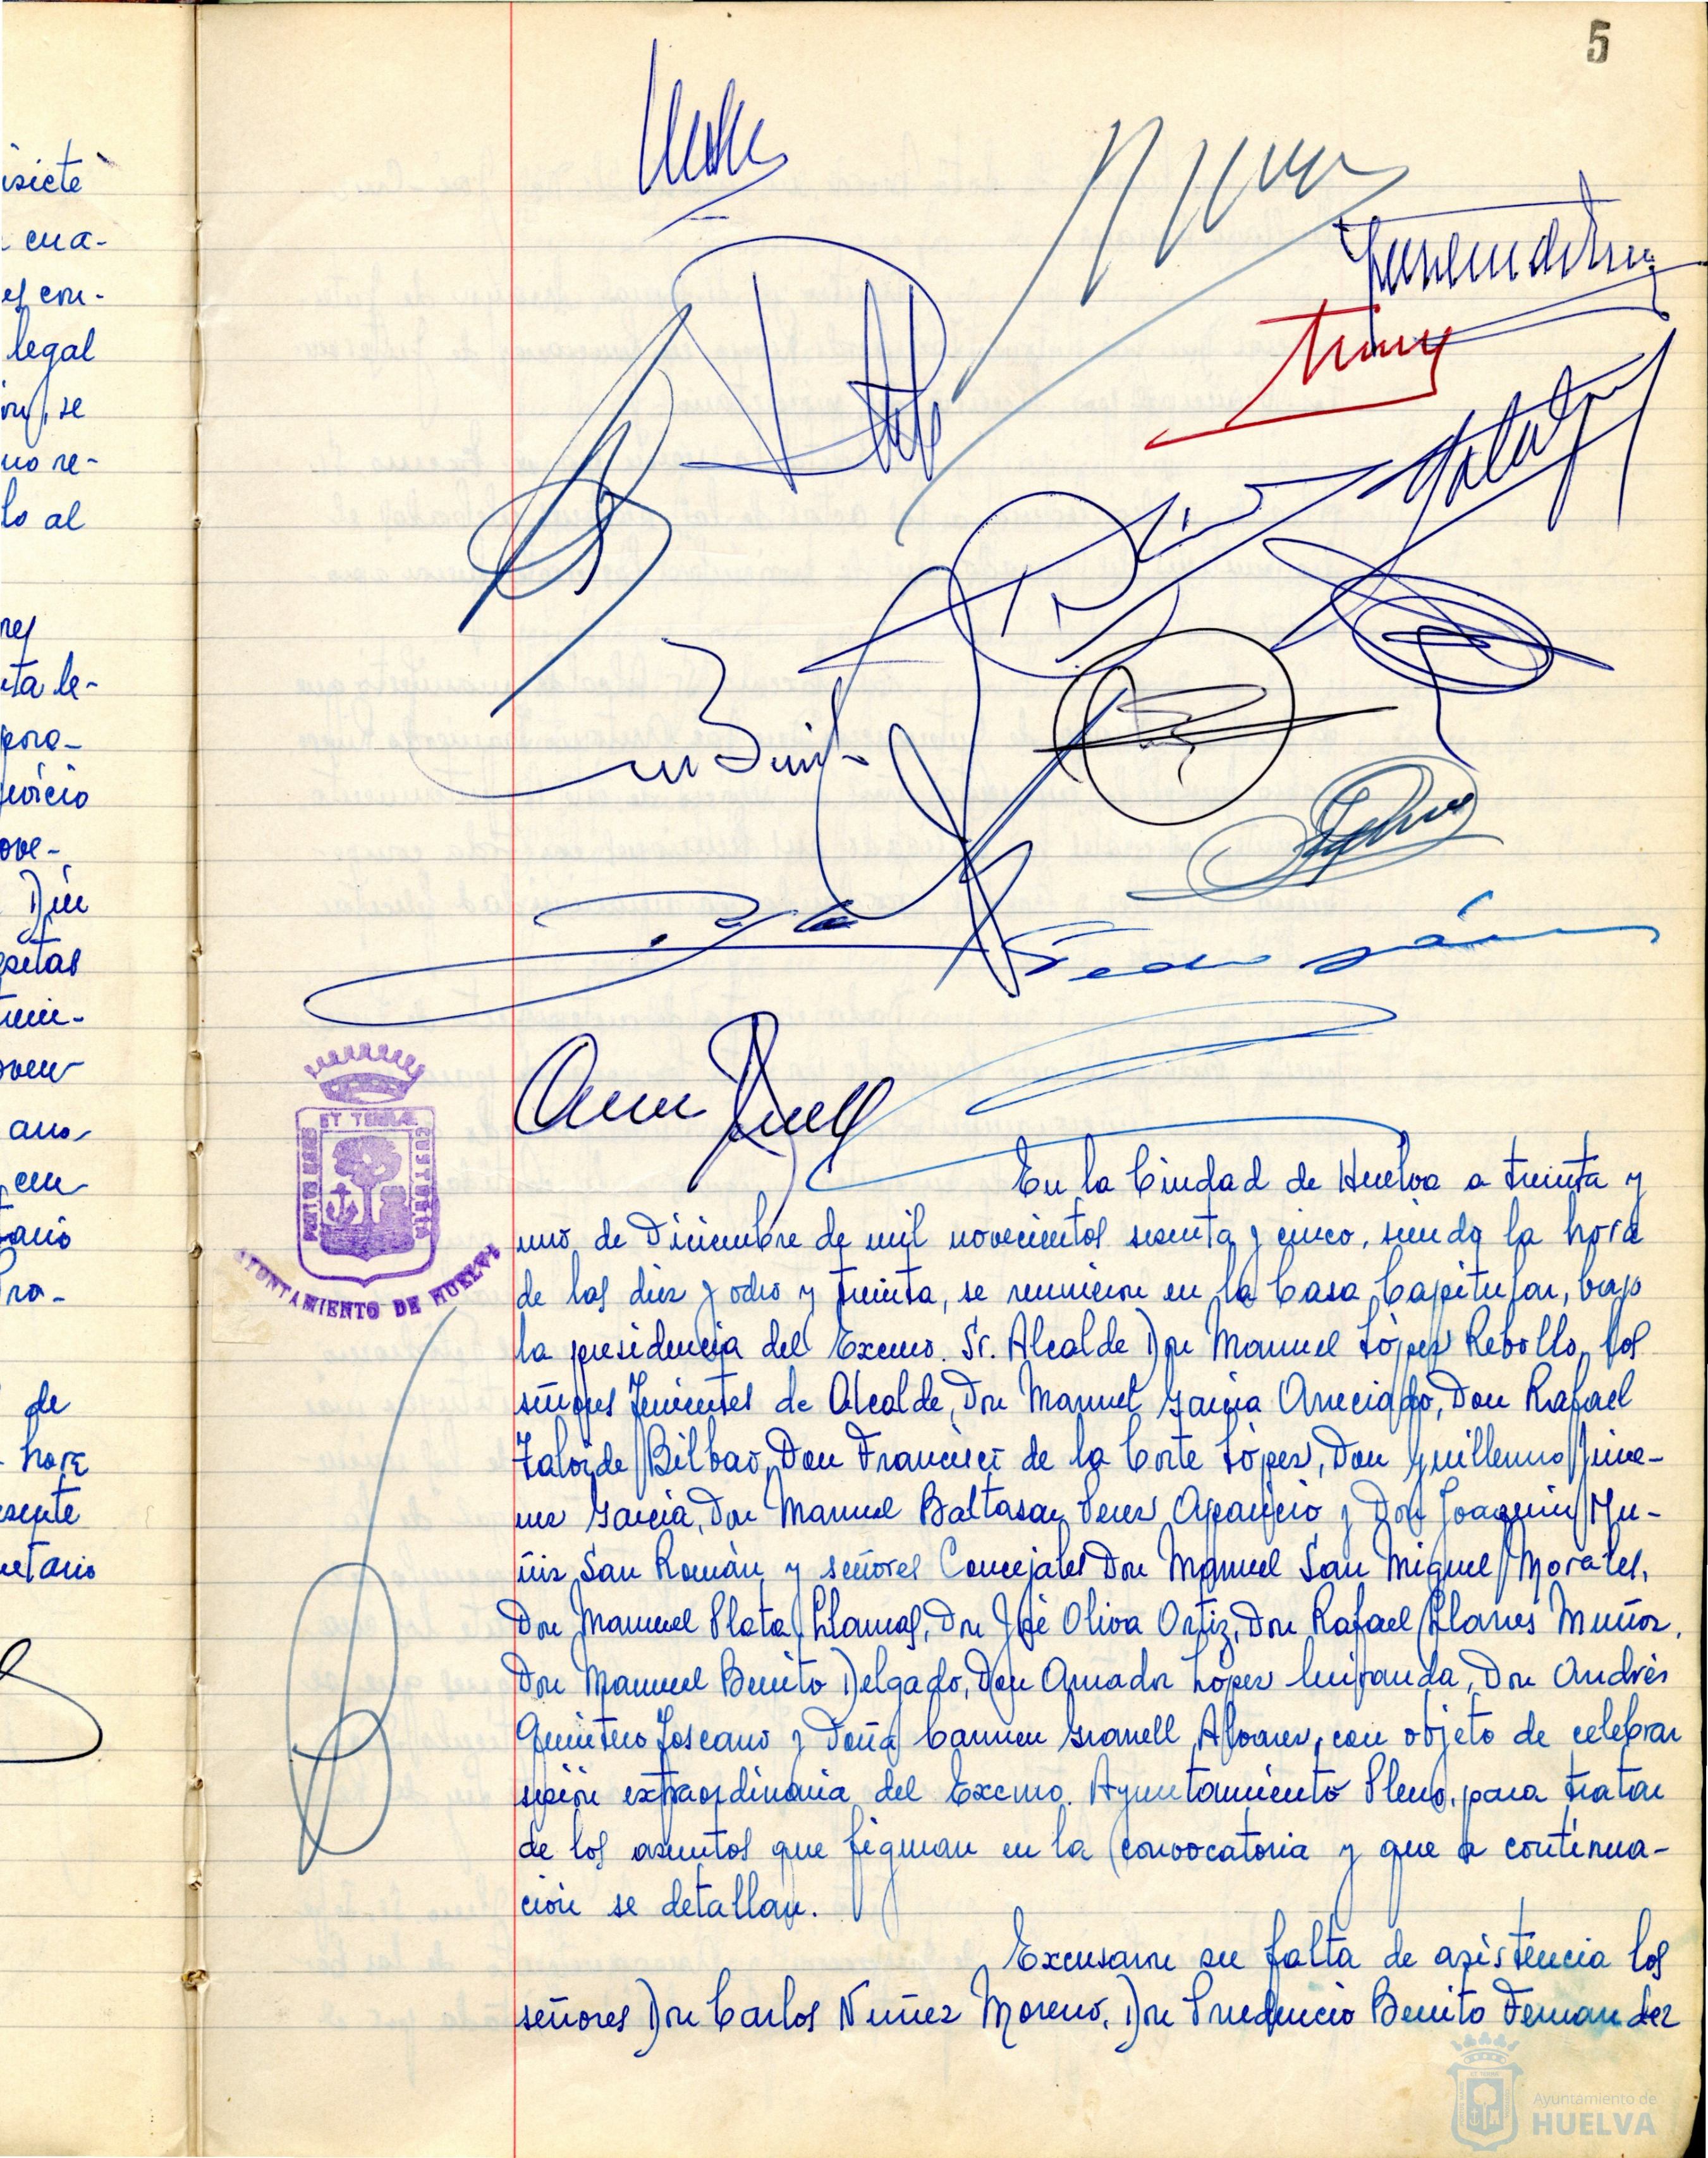 5
isiete
cua-
es con-
legal
se
uo re-
lo al
ta le-
pora-
ove-
Din
setas
ano
en
tario
Pro-
de
hora
cretario
Pedro
ET TERRAE
PORTUS MARIS
CUSTODIA
AYUNTAMIENTO DE HUELVA
En la Ciudad de Huelva a treinta y
uno de Diciembre de mil novecientos sesenta y cinco, siendo la hora
de las diez y ocho y treinta, se reunieron en la Casa Capitular, bajo
la presidencia del Excmo. Sr. Alcalde Don Manuel López Rebollo, los
señores Tenientes de Alcalde, Don Manuel García Anreciado, Don Rafael
Zalvide Bilbao, Don Francisco de la Corte López, Don Guillermo Jime-
no García, Don Manuel Baltasar Perez Aparicio y Don Joaquin Mu-
ñiz San Román y señores Concejales Don Manuel San Miguel Morales,
Don Manuel Plata Llamas, Don José Oliva Ortiz, Don Rafael Llanes Muñoz,
Don Manuel Benito Delgado, Don Amador López Miranda, Don Andrés
Quintero Toscano y Doña Carmen Granell Alvarez, con objeto de celebrar
sesión extraordinaria del Excmo. Ayuntamiento Pleno, para tratar
de los asuntos que figuran en la convocatoria y que a continua-
ción se detallan.
Excusaron su falta de asistencia los
señores Don Carlos Nuñez Moreno, Don Prudencio Benito Fernandez
Ayuntamiento de
HUELVA